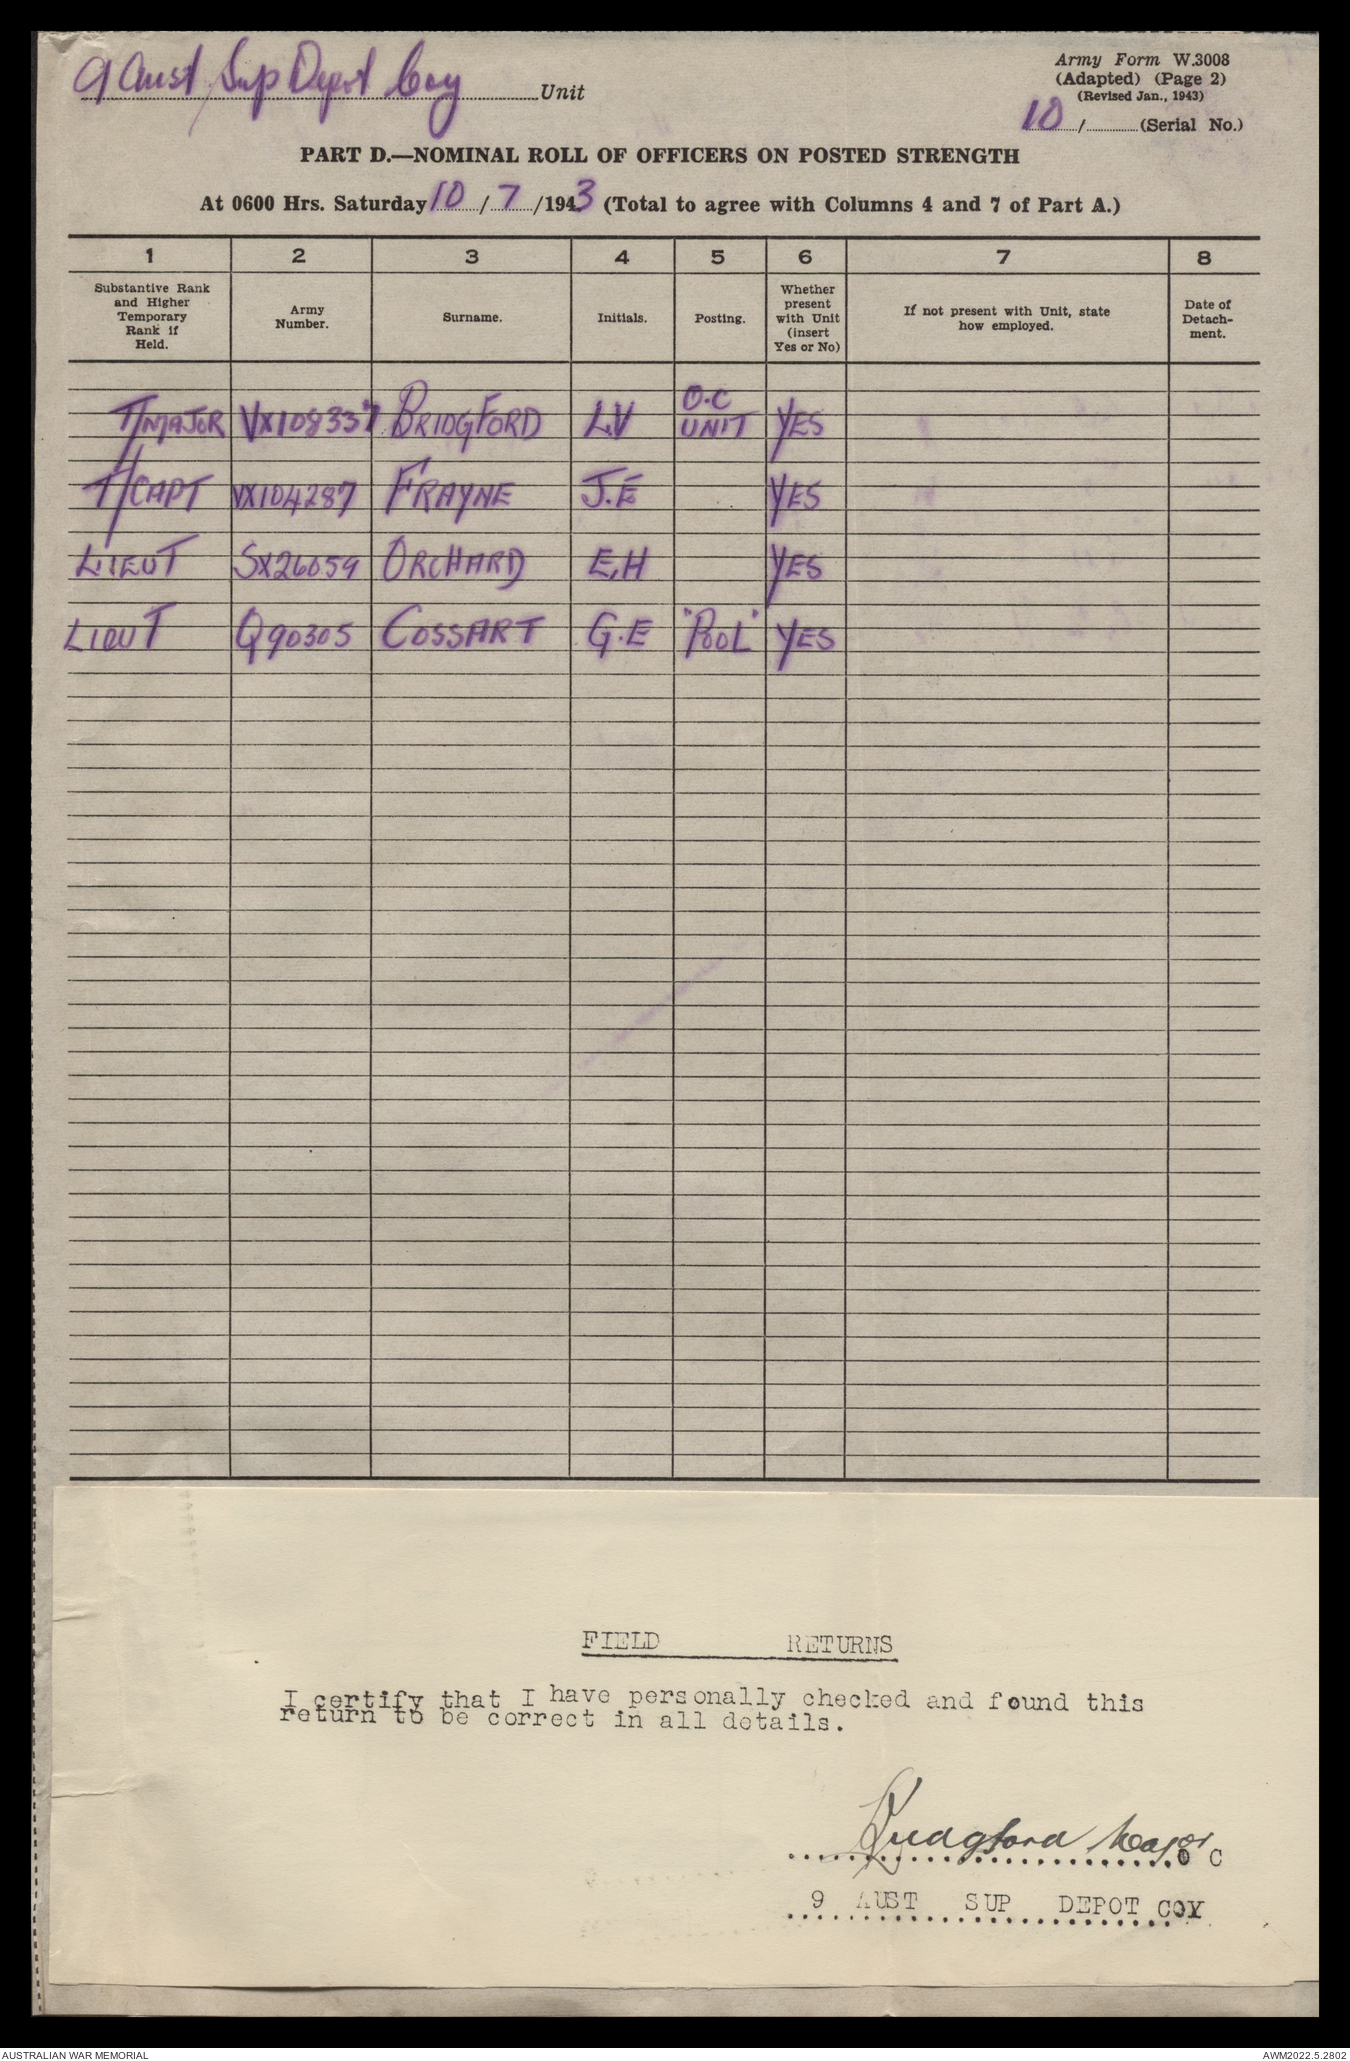 9 Aust Sup Depot Coy Unit
Army Form W.3008
(Adapted) (Page 2)
(Revised Jan., 1943)
10 / (Serial No.)
PART D.—NOMINAL ROLL OF OFFICERS ON POSTED STRENGTH
At 0600 Hrs. Saturday 10 / 7 /1943 (Total to agree with Columns 4 and 7 of Part A.)
1 2 3 4 5 6 7 8
Substantive Rank and Higher Temporary Rank if Held.
Army Number.
Surname.
Initials.
Posting.
Whether present with Unit (insert Yes or No)
If not present with Unit, state how employed.
Date of Detach-ment.
T/MAJOR VX108337 BRIDGFORD L.V O.C UNIT YES
T/CAPT VX104287 FRAYNE J.E YES
LIEUT SX26059 ORCHARD E.H YES
LIEUT Q90305 COSSART G.E "POOL" YES
FIELD RETURNS
I certify that I have personally checked and found this
return to be correct in all details.
LBridgford Major
O C
9 AUST SUP DEPOT COY
AUSTRALIAN WAR MEMORIAL
AWM2022.5.2802